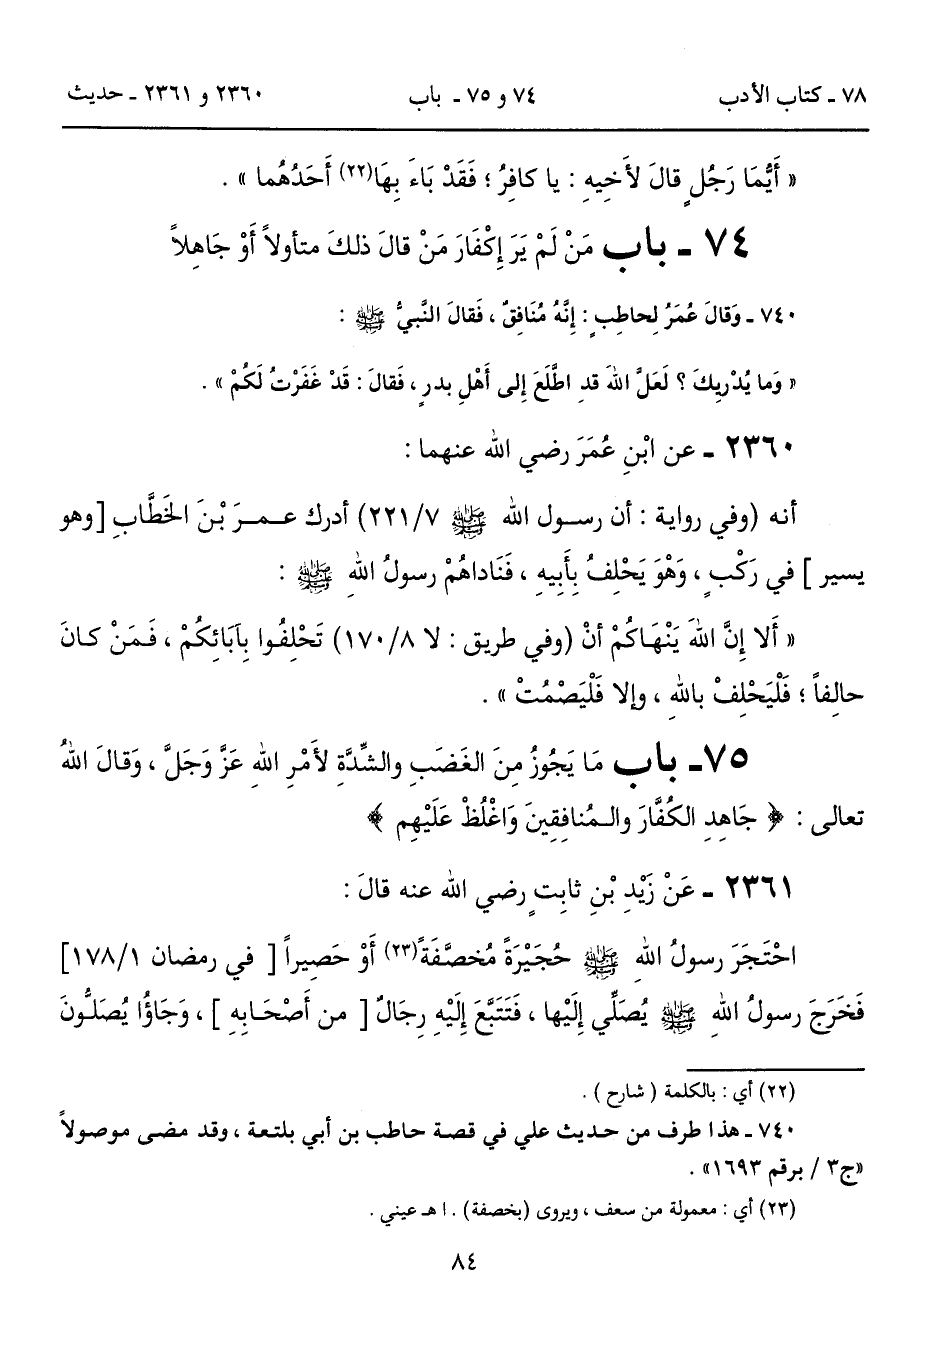 ٧٨ ـ كتاب الأدب ٧٤ و ٧٥ ـ باب ٢٣٦٠ و ٢٣٦١ ـ حديث
« أَيُّمَا رَجُلٍ قالَ لأَخِيهِ : يا كافِرُ ؛ فَقَدْ بَاءَ بِهَا(٢٢) أَحَدُهُما » .
٧٤ ـ باب مَنْ لَمْ يَرَ إِكْفَارَ مَنْ قالَ ذلكَ متأولاً أَوْ جَاهِلاً
٧٤٠ ـ وَقالَ عُمَرُ لحاطِبٍ : إِنَّهُ مُنَافِقٌ ، فَقالَ النَّبيُّ ﷺ :
« وَما يُدْرِيكَ ؟ لَعَلَّ اللهَ قدِ اطَّلَعَ إِلى أَهْلِ بدرٍ ، فَقالَ : قَدْ غَفَرْتُ لَكُمْ » .
٢٣٦٠ ـ عن ابْنِ عُمَرَ رضي الله عنهما :
أنه (وفي رواية : أن رسول الله ﷺ ٢٢١/٧) أدرك عمرَ بْنَ الخَطَّابِ [وهو
يسير ] في رَكْبٍ ، وَهْوَ يَحْلِفُ بِأَبِيهِ ، فَنَاداهُمْ رسولُ اللهِ ﷺ :
« أَلا إِنَّ اللهَ يَنْهَاكُمْ أنْ (وفي طريق : لا ١٧٠/٨) تَحْلِفُوا بِآبَائِكُمْ ، فَمَنْ كانَ
حالِفاً ؛ فَلْيَحْلِفْ باللهِ ، وإلا فَلْيَصْمُتْ » .
٧٥ـ باب مَا يَجُوزُ مِنَ الغَضَبِ والشِّدَّةِ لأَمْرِ اللهِ عَزَّ وَجَلَّ ، وَقالَ اللهُ
تعالى : ﴿ جَاهِدِ الكُفَّارَ والمُنافِقِينَ وَاغْلُظْ عَلَيْهِم ﴾
٢٣٦١ ـ عَنْ زَيْدِ بْنِ ثابِتٍ رضي الله عنه قالَ :
احْتَجَرَ رسولُ اللهِ ﷺ حُجَيْرَةً مُخَصَّفَةً(٢٣) أَوْ حَصِيراً [ في رمضان ١٧٨/١]
فَخَرَجَ رسولُ اللهِ ﷺ يُصَلِّي إِلَيْها ، فَتَتَبَّعَ إِلَيْهِ رِجَالٌ [ من أَصْحَابِهِ ] ، وَجَاؤُا يُصَلُّونَ
(٢٢) أي : بالكلمة ( شارح ) .
٧٤٠ ـ هذا طرف من حديث علي في قصة حاطب بن أبي بلتعة ، وقد مضى موصولاً
«ج٣ / برقم ١٦٩٣» .
(٢٣) أي : معمولة من سعف ، ويروى (بخصفة) . ا هـ عيني .
٨٤